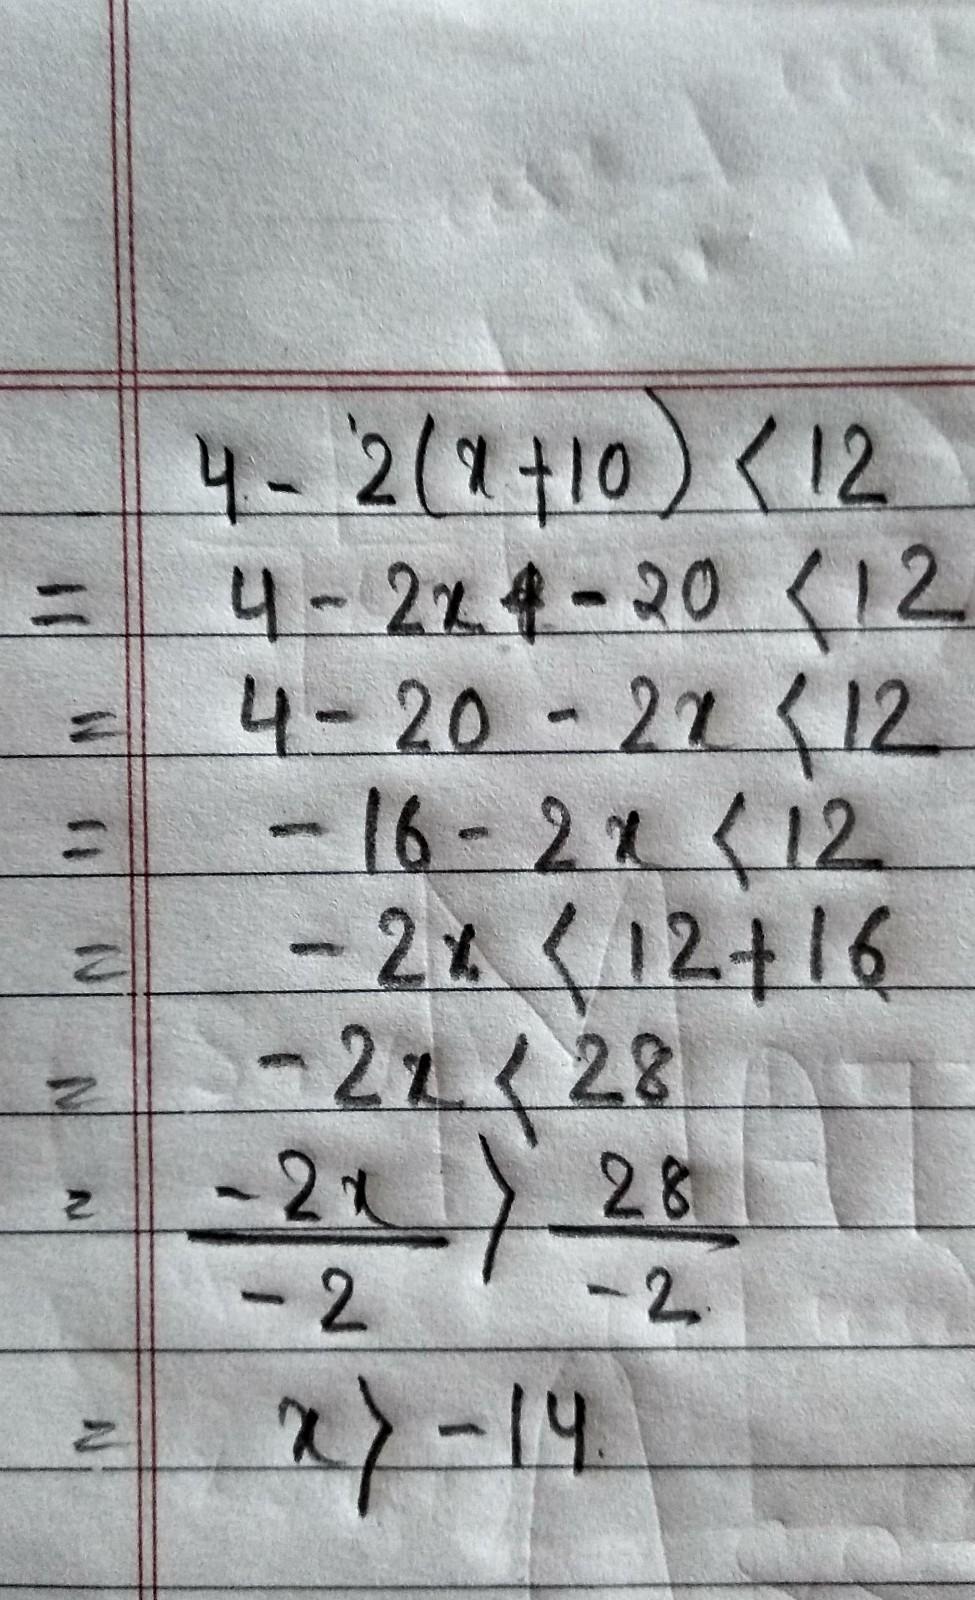 4 - 2(x+10) < 12
= 4 - 2x - 20 < 12
= 4 - 20 - 2x < 12
= - 16 - 2x < 12
= - 2x < 12 + 16
= - 2x < 28
= - 2x / - 2 > 28 / - 2
= x > - 14